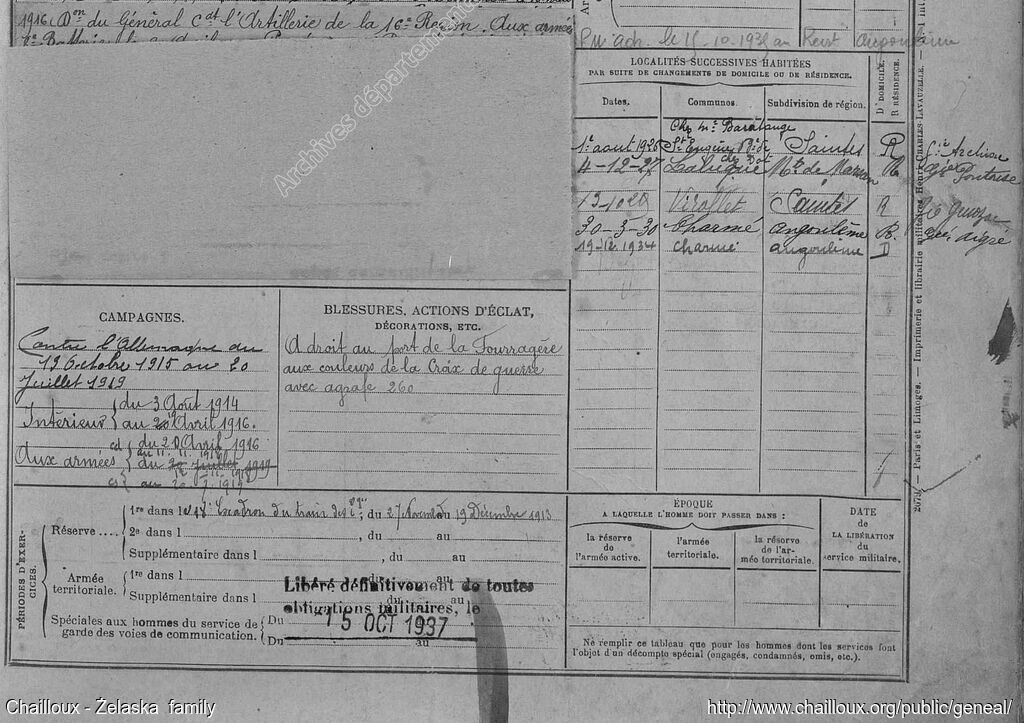 1916. Don du Général Cdt l'Artillerie de la 16e Région. Aux armées
Archives départementales
LOCALITÉS SUCCESSIVES HABITÉES
PAR SUITE DE CHANGEMENTS DE DOMICILE OU DE RÉSIDENCE.
Dates. Communes. Subdivision de région. D' DOMICILE. R RÉSIDENCE.
Chez Mr Baratange
1er aout 1926 St Eugène Saintes R
4-12-27 Mt de Marsan R
13-10-28 Virollet Saintes R
30-5-30 Charmé Angoulême R.
19-12-1934 charmé angoulême D
CAMPAGNES.
Contre l'Allemagne du
19 Octobre 1915 au 20
Juillet 1919
Intérieur du 3 Août 1914
au 20 Avril 1916.
Aux armées cd du 20 Avril 1916
au 11.11.1918
du 20 Juillet 1919
BLESSURES, ACTIONS D'ÉCLAT,
DÉCORATIONS, ETC.
A droit au port de la Fourragère
aux couleurs de la Croix de guerre
avec agrafe 260
PÉRIODES D'EXERCICES.
Réserve ....
1re dans l 18e Escadron du train des , du 27 Novem au 19 Décembre 1913
2e dans l , du au
Supplémentaire dans l , du au
Armée territoriale.
1re dans l , du au
Supplémentaire dans l , du au
Spéciales aux hommes du service de garde des voies de communication.
Du au
Du au
Libéré définitivement de toutes
obligations militaires, le
15 OCT 1937
ÉPOQUE
A LAQUELLE L'HOMME DOIT PASSER DANS :
la réserve de l'armée active.
l'armée territoriale.
la réserve de l'armée territoriale.
DATE
de
LA LIBÉRATION
du
service militaire.
Ne remplir ce tableau que pour les hommes dont les services font
l'objet d'un décompte spécial (engagés, condamnés, omis, etc.).
Paris et Limoges. — Imprimerie et librairie militaires Henri CHARLES-LAVAUZELLE.
Chailloux - Żelaska family
http://www.chailloux.org/public/geneal/